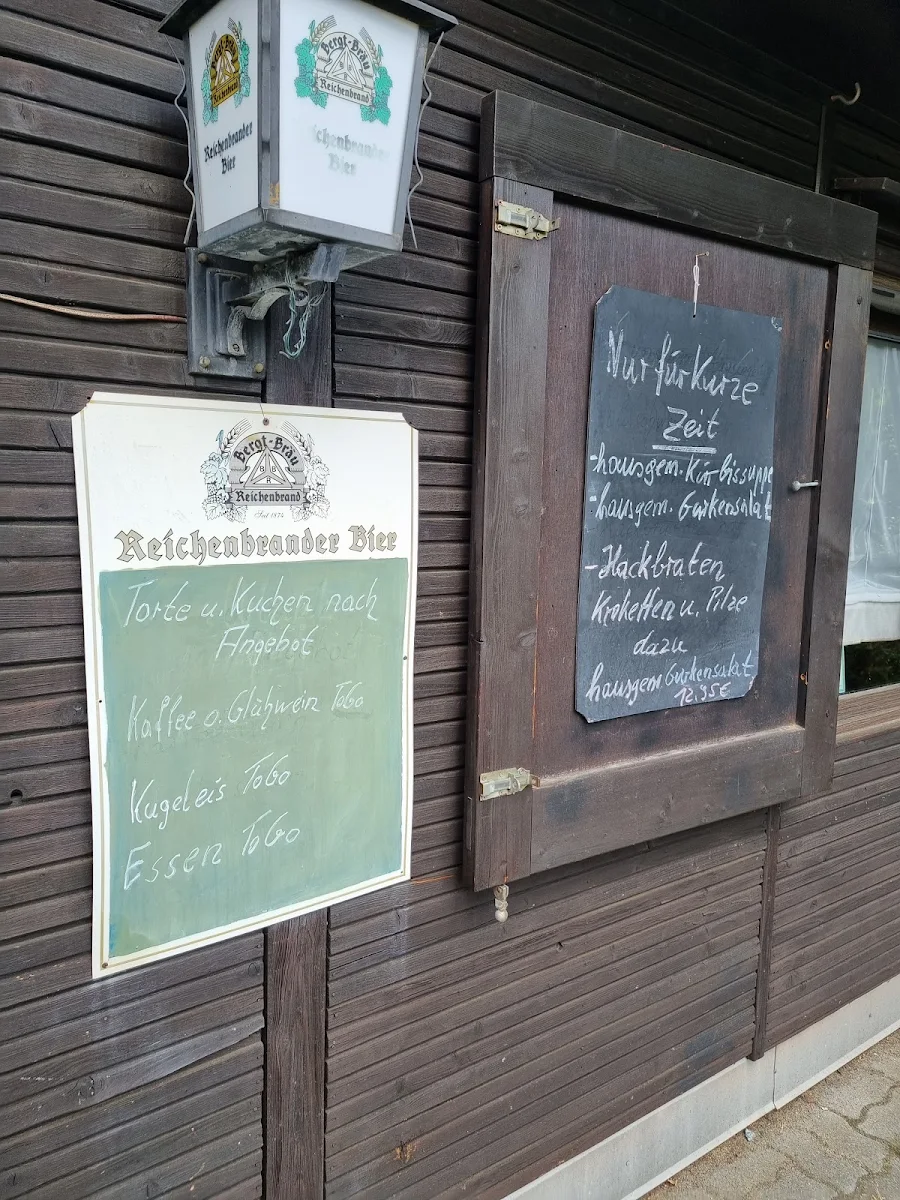 Bergt-Bräu
Reichenbrand
Reichenbrander
Bier
Bergt-Bräu
Reichenbrand
Bier
Bergt-Bräu
Reichenbrand
Seit 1874
Reichenbrander Bier
Torte u. Kuchen nach
Angebot
Kaffee o. Glühwein ToGo
Kugeleis ToGo
Essen ToGo
Nur für Kurze
Zeit
-hausgem. Kürbissuppe
-hausgem. Gurkensalat
-Hackbraten
Kroketten u. Pilze
dazu
hausgem Gurkensalat
12,95€